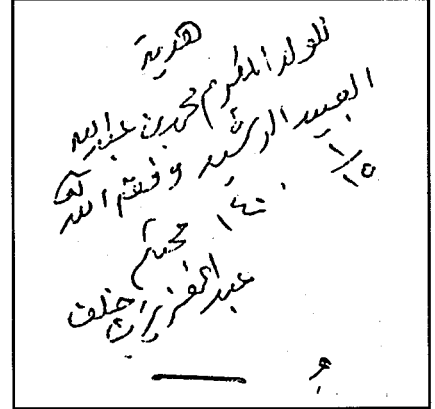 هدية
للولد المكرم محمد بن عبدالله
العبيد الرشيد وفقه الله
١٤٠٠ ١/١٥
محبكم
عبدالعزيز خلف